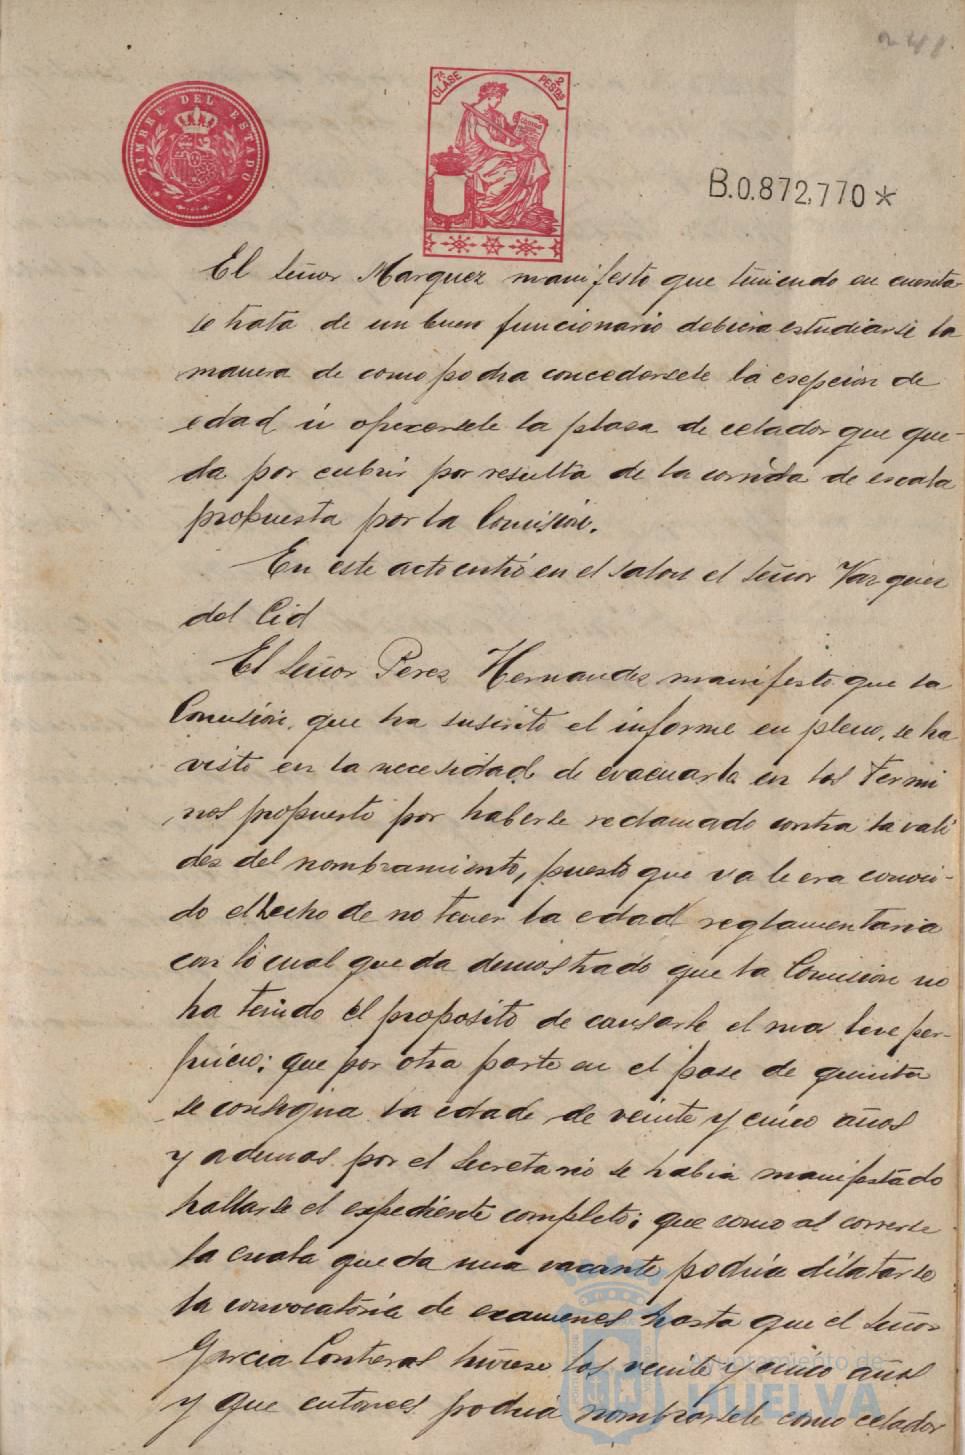 241
TIMBRE DEL ESTADO
7ª CLASE 2 PESTAS
B.0.872,770*
El Señor Marquez manifesto que teniendo en cuenta
se trata de un buen funcionario debiera estudiarse la
manera de como podra concedersele la esepcion de
edad ú ofrecersele la plaza de celador que que-
da por cubrir por resulta de la corrida de escala
propuesta por la Comisión.
En este acto entró en el salon el Señor Vazquez
del Cid
El Señor Perez Hernandez manifesto que la
Comisión, que ha suscrito el informe en pleno, se ha
visto en la necesidad de evacuarla en los termi
nos propuesto por haberse reclamado contra la vali
dez del nombramiento, puesto que ya le era conoci-
do el hecho de no tener la edad reglamentaria
con lo cual queda demostrado que la Comision no
ha tenido el proposito de causarle el mas leve per-
juicio; que por otra parte en el pase de quinta
se consigna la edad de veinte y cinco años
y ademas por el Secretario se habia manifestado
hallarse el expediente completo; que como al correrse
la escala queda una vacante podria dilatarse
la convocatoria de examenes hasta que el Señor
Garcia Contreras tuviese los veinte y cinco años
y que entonces podria nombrarsele como celador
Ayuntamiento de
HUELVA